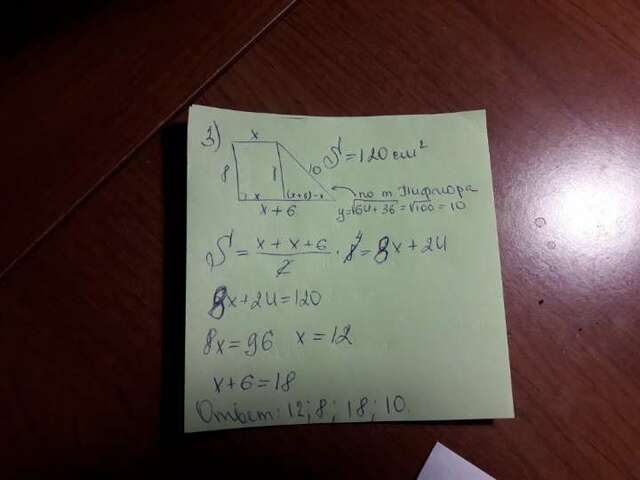 3)
x
8
8
10
S = 120 см²
x
(x+6)-x
x + 6
по т. Пифагора
y=√64+36 = √100 = 10
S = x + x + 6 / 2 · 8 4 = 8x + 24
8x + 24 = 120
8x = 96 x = 12
x+6 = 18
Ответ: 12; 8; 18; 10.